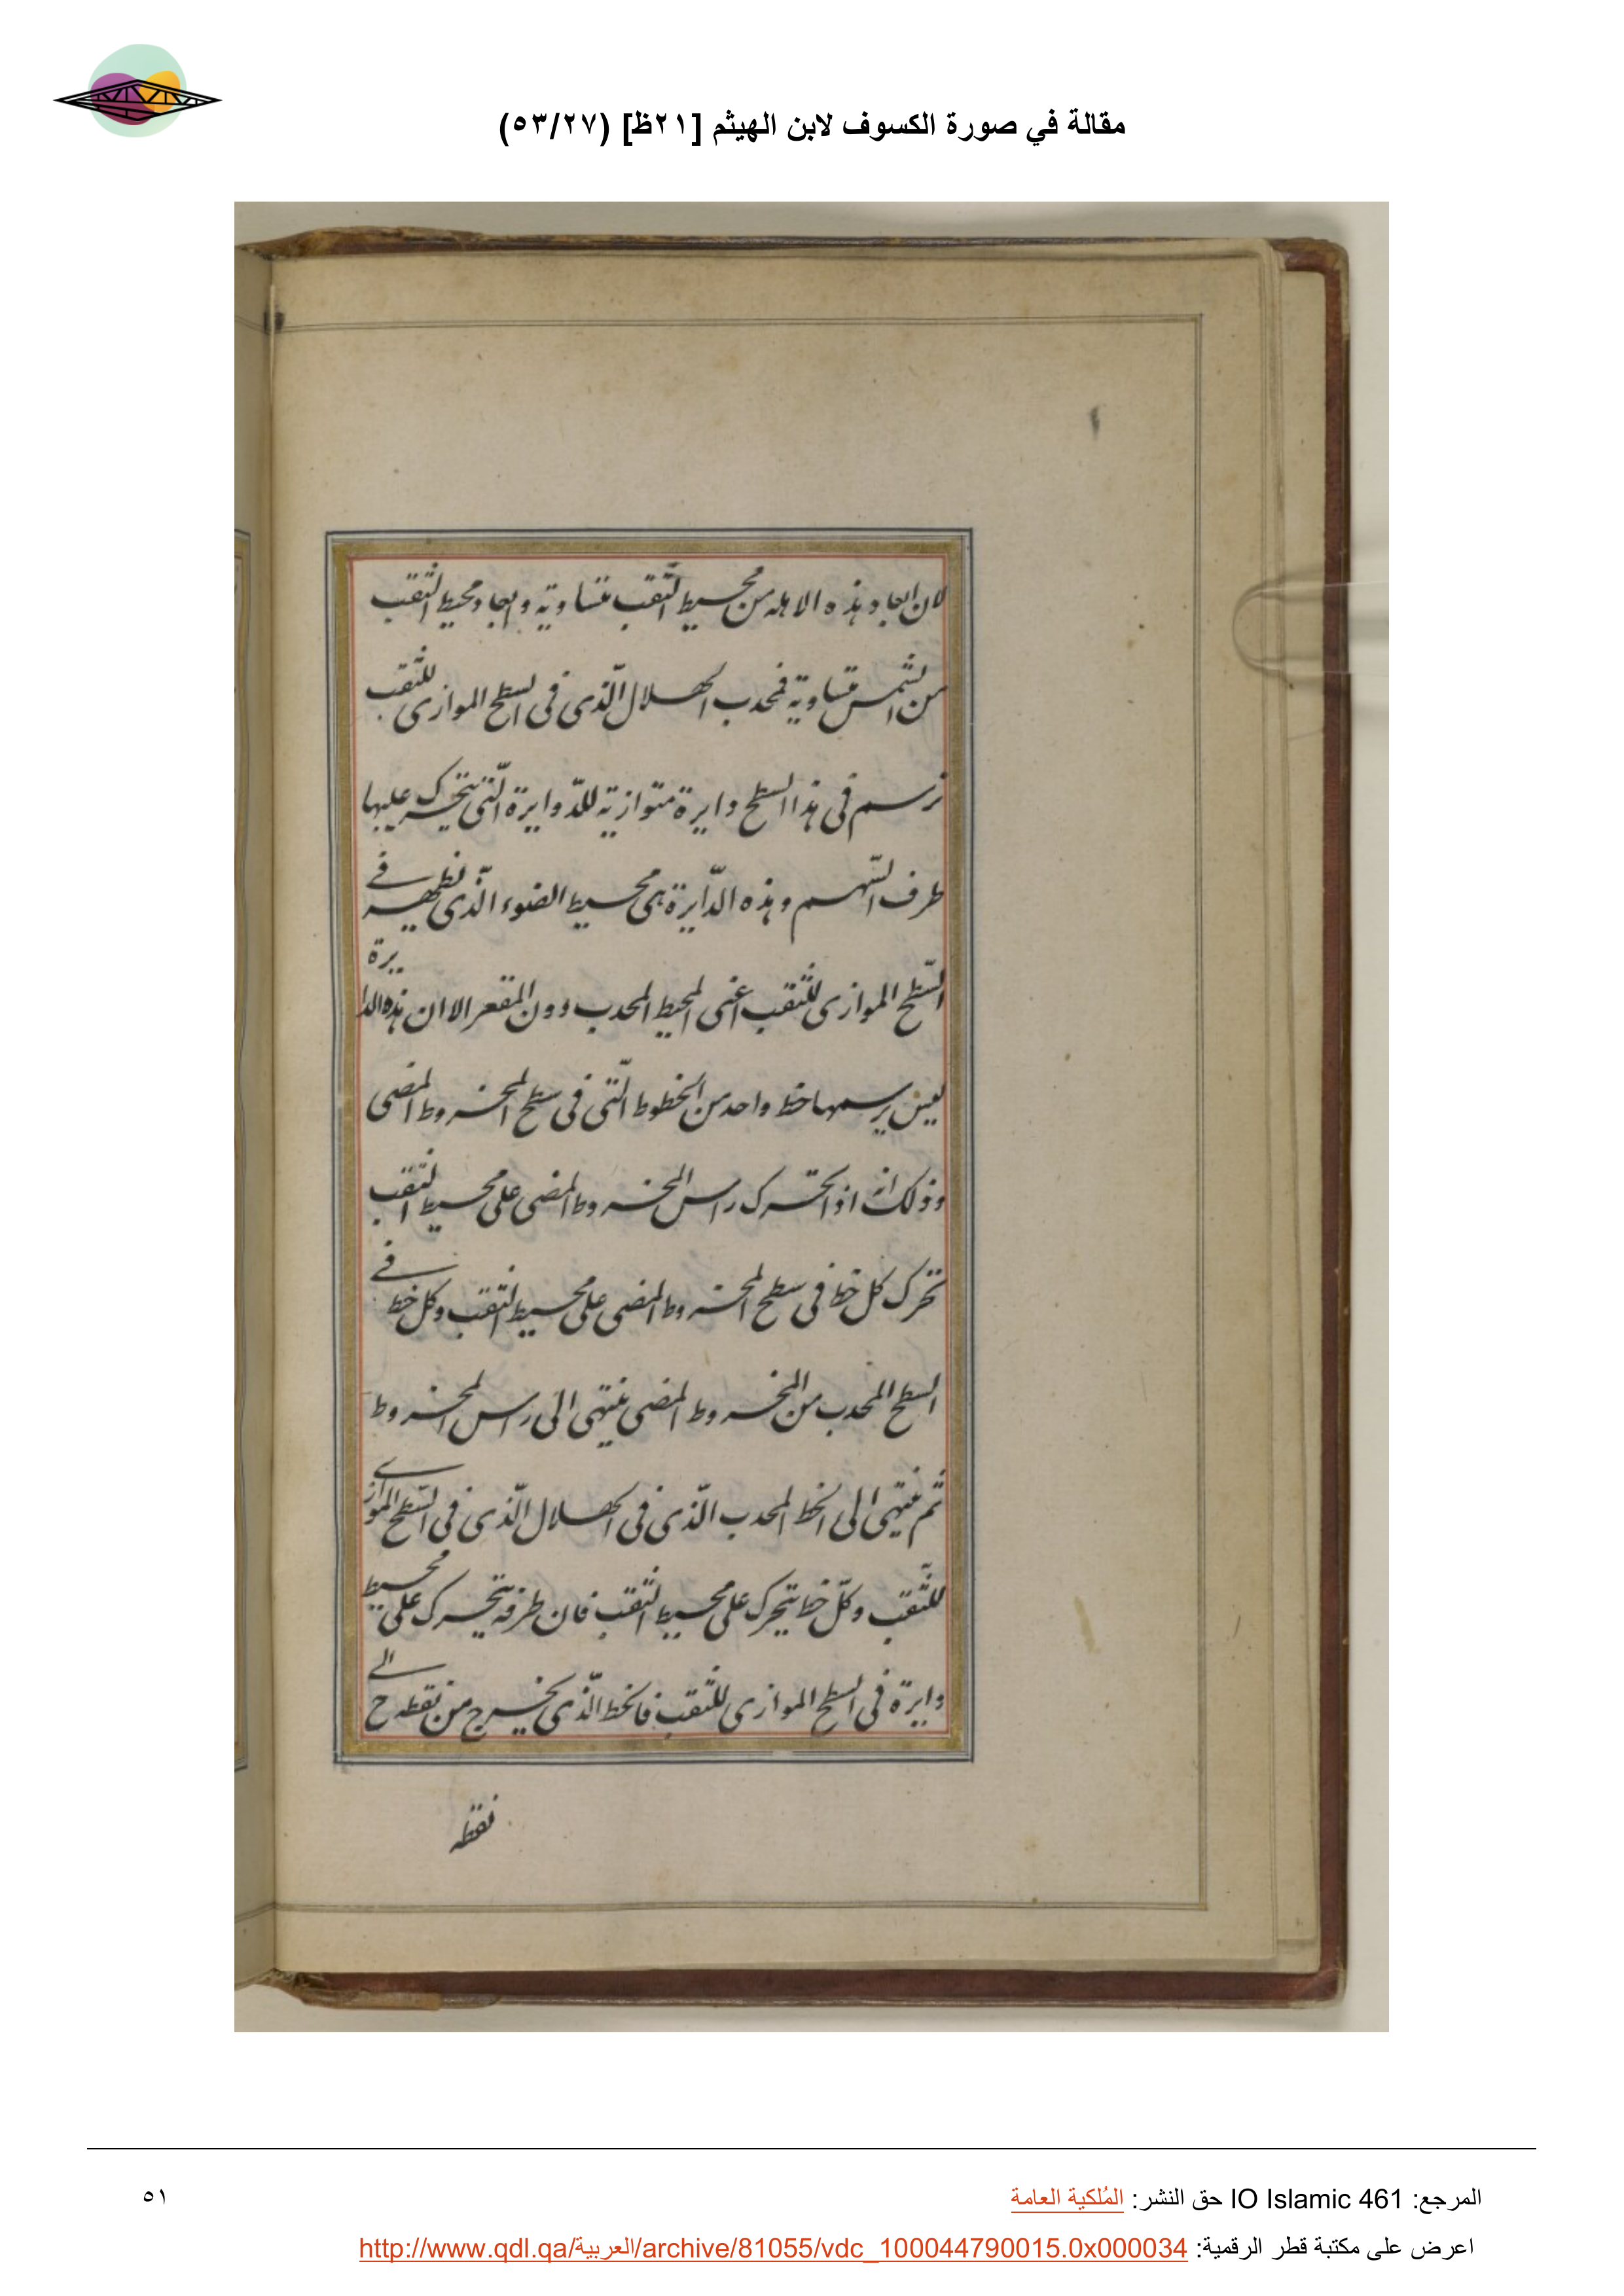 مقالة في صورة الكسوف لابن الهيثم [٢١ظ] (٥٣/٢٧)
لان ابعاد هذه الاهله من محيط الثّقب متساوية وابعاد محيط الثقب
من الشّمس متساوية فمحدب الهلال الّذى فى السطح الموازى للثّقب
ترسم فى هذا السطح دايرة متوازية للدّوايرة الّتى يتحرك عليها
طرف السّهم وهذه الدّايرة هى محيط الضوء الّذى يظهر فے
السّطح الموازى للثقب اعنى المحيط المحدب دون المقعر الا ان هذه الدايرة
ليس يرسمها خط واحد من الخطوط الّتى فى سطح المخروط المضى
وذلك انه اذا تحرك راس المخروط المضى على محيط الثقب
تحرك كل خط فى سطح المخروط المضى على محيط الثقب وكل خط فے
السطح المحدب من المخروط المضى ينتهى الى راس المخروط
ثم ينتهى الى الخط المحدب الّذى فى الهلال الّذى فى السّطح الموازے
للثّقب وكلّ خط يتحرك على محيط الثقب فان طرفه يتحرك على محيط
دايرة فى السطح الموازى للثقب فالخط الّذى يخرج من نقطه ح الے
نقطه
المرجع: IO Islamic 461 حق النشر: المُلكية العامة
٥١
اعرض على مكتبة قطر الرقمية: http://www.qdl.qa/العربية/archive/81055/vdc_100044790015.0x000034